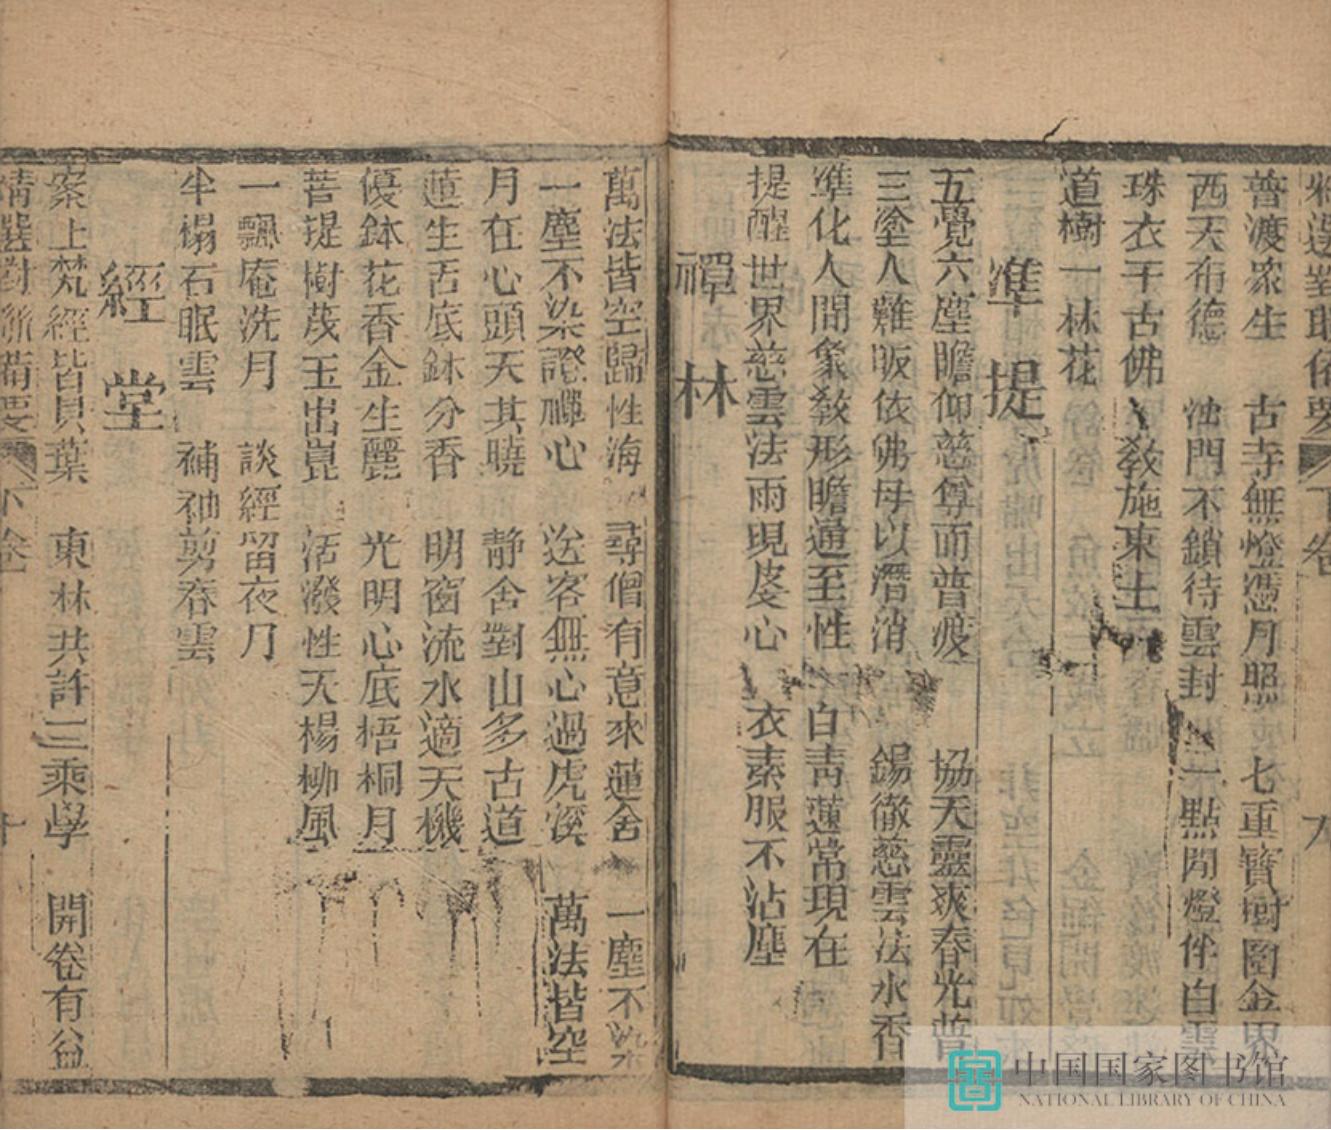 普渡衆生 古寺無燈憑月照 七重寶樹圍金界
西天布德 浊門不鎖待雲封 一點閒燈伴白雲
珠衣千古佛 教施東土
道樹一林花
準提
五覺六塵瞻仰慈尊而普渡 協天靈爽春光普
三塗八難皈依佛母以潛消 錫徹慈雲法水香
準化人間象教形瞻通至性 白青蓮常現在
提醒世界慈雲法雨現皮心 衣素服不沾塵
禪林
萬法皆空歸性海 尋僧有意來蓮舍 一塵不染
一塵不染證禪心 送客無心過虎溪 萬法皆空
月在心頭天其曉 靜舍對山多古道
蓮生舌底鉢分香 明窗流水適天機
優鉢花香金生麗 光明心底梧桐月
菩提樹茂玉出崑 活潑性天楊柳風
一瓢庵洗月 談經留夜月
半榻石眠雲 補衲剪春雲
經堂
案上梵經皆貝葉 東林共許三乘學 開卷有益
精選對聯備要 下卷 十